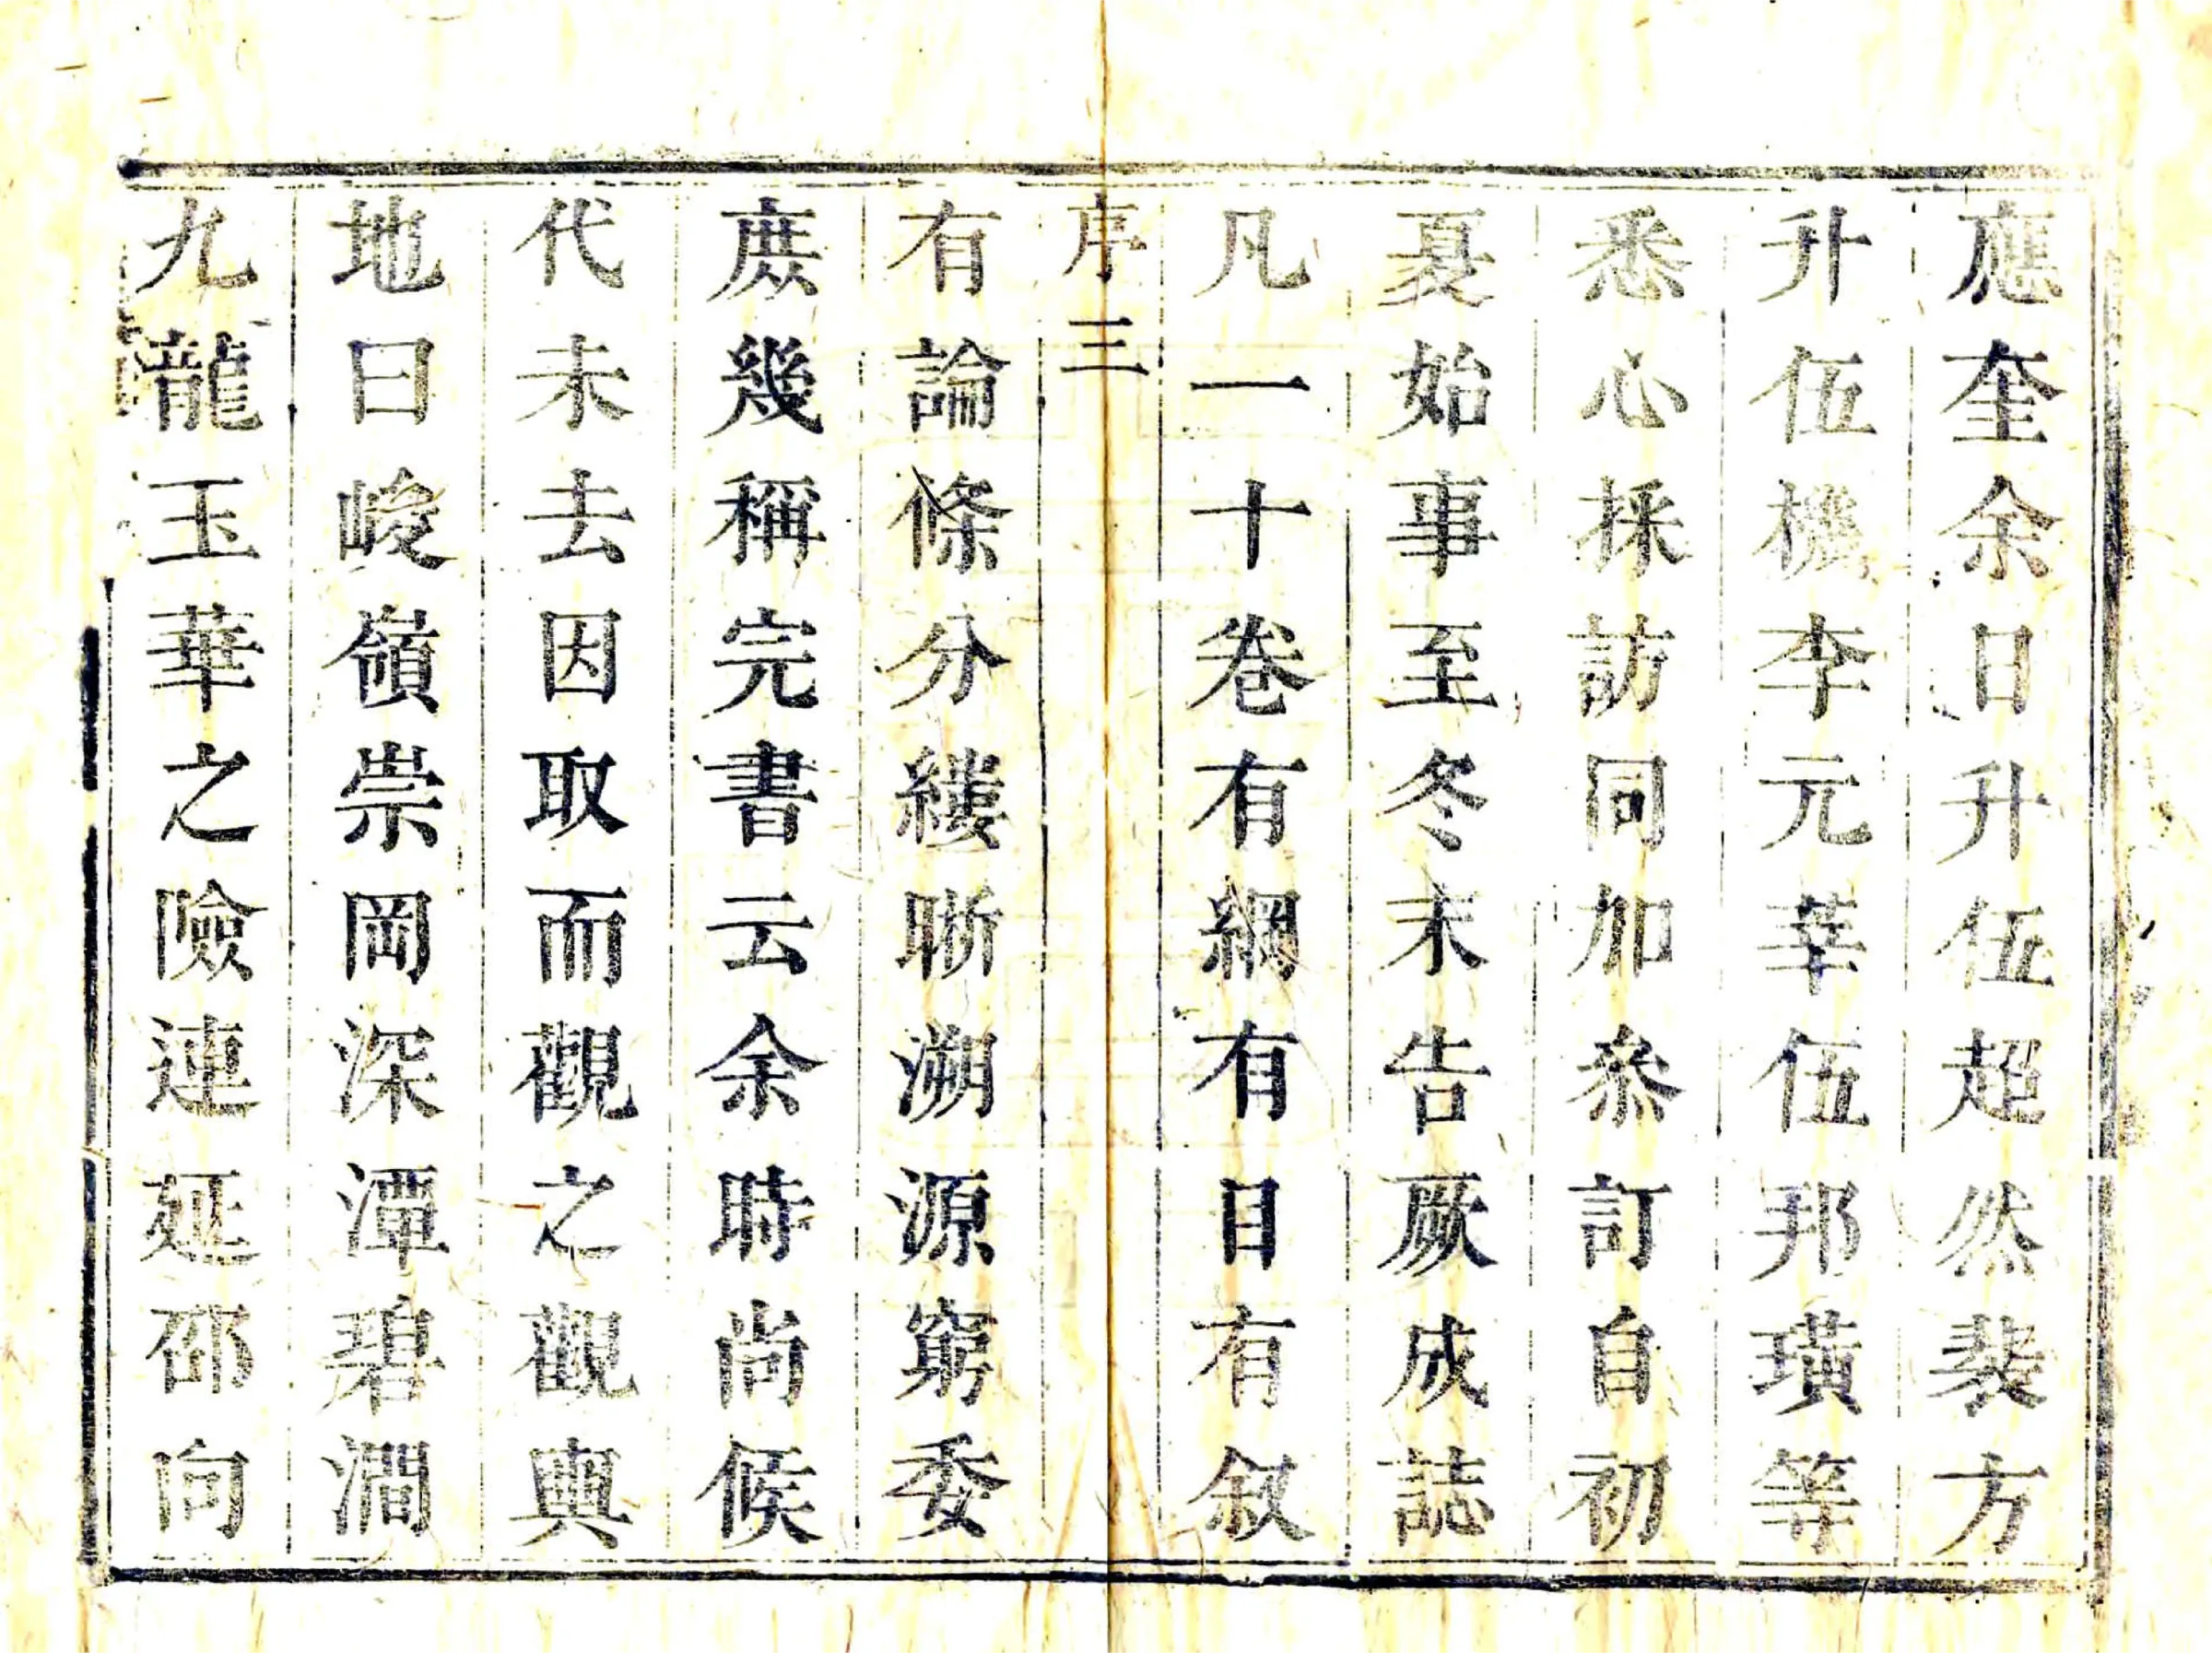 應奎余日升伍超然裴方
升伍機李元莘伍邦璜等
悉心採訪同加叅訂自初
夏始事至冬末告厥成誌
凡一十卷有綱有目有叙
序三
有論條分縷晰溯源窮委
庶幾稱完書云余時尚候
代未去因取而觀之觀輿
地曰峻嶺崇岡深潭碧澗
九龍玉華之險連延邵向